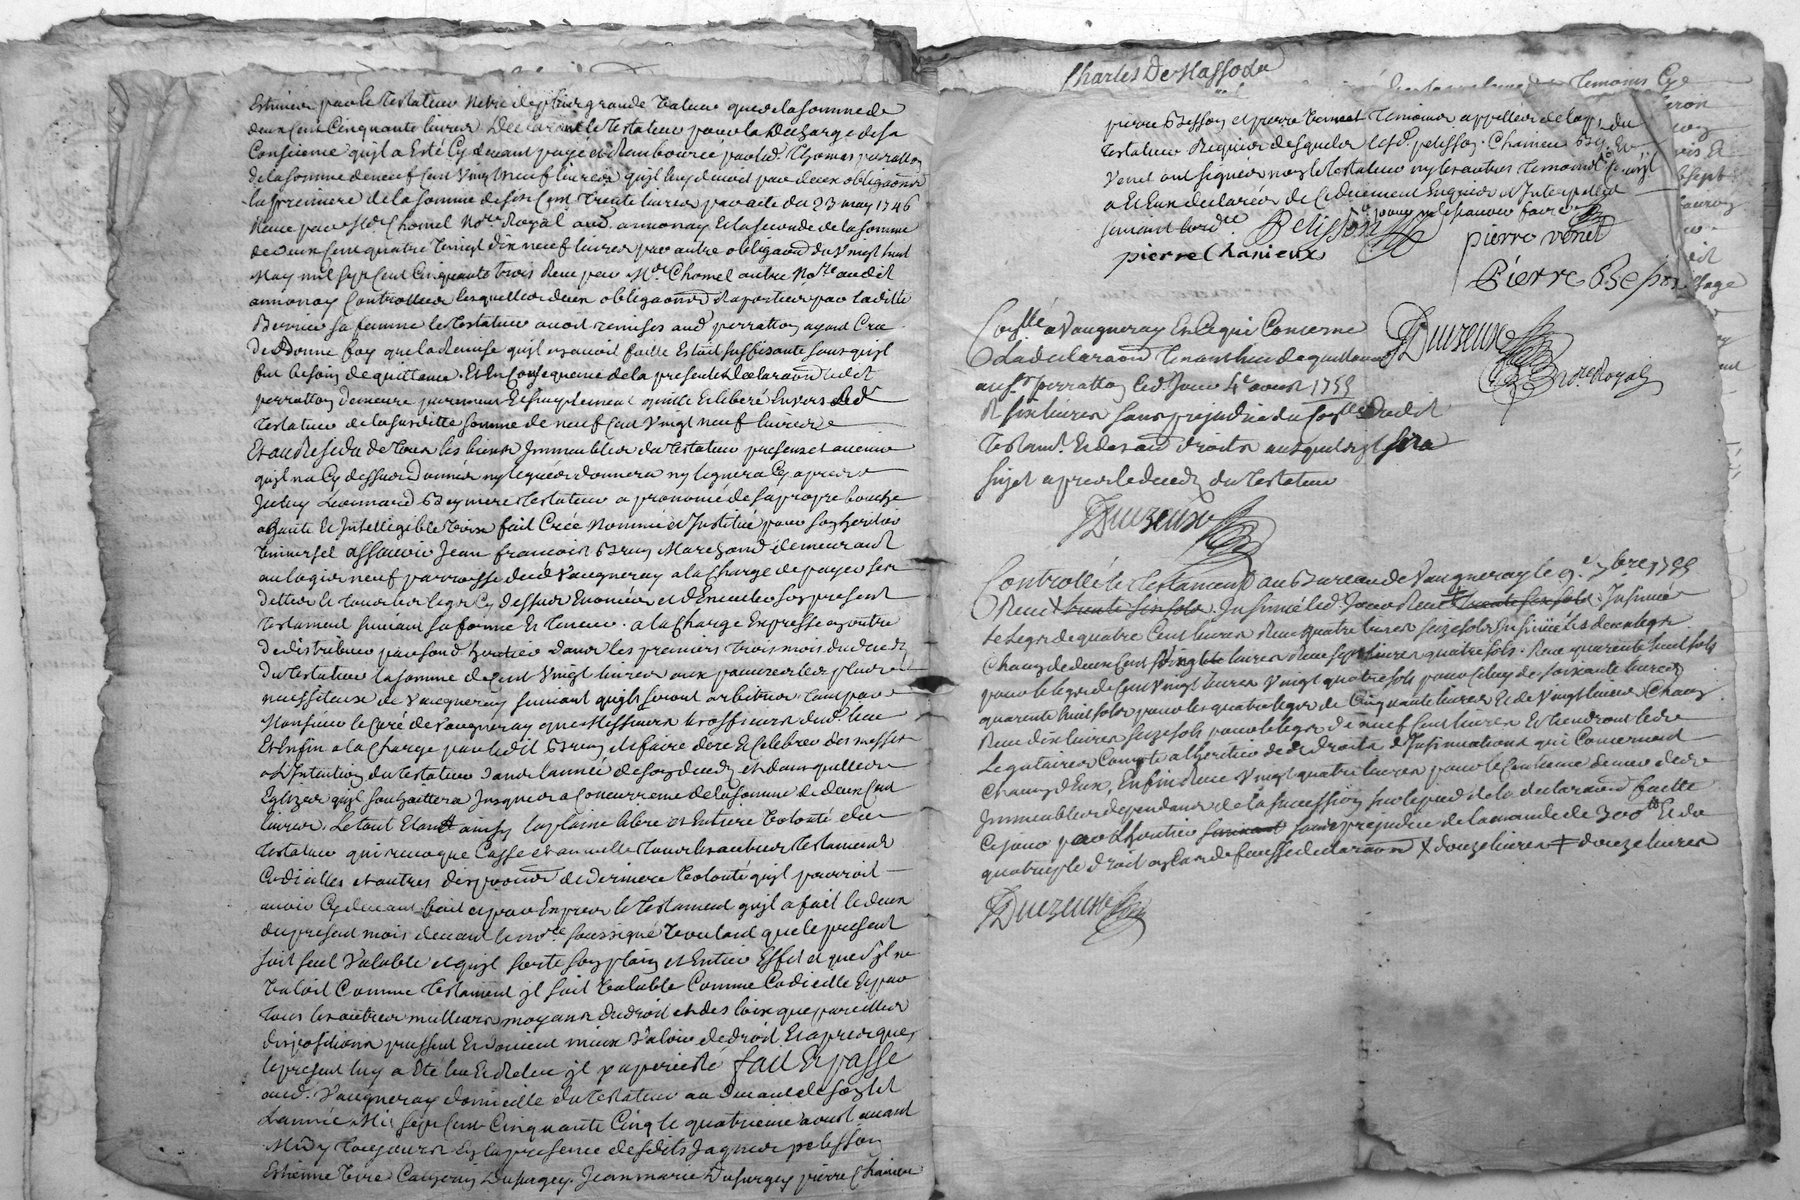 Estimés par le Testateur n'etre de plus grande valeur que de la somme de
deux Cent Cinquante livres Declarant le Testateur pour la Decharge de sa
Consience qu'il a Esté Cy devant payé et Rembourcé par led. Thomas perratton
de la somme de neuf Cent Vingt neuf livres qu'il luy devoit par deux obligaons
la premiere de la somme de six Cent Trente livres par acte du 23 may 1746
Reçue par Me Chomel Nore Royal aud. annonay Et la seconde de la somme
de deux Cent quatre Vingt dix neuf livres par autre obligaon du Vingt huit
May mil sept Cent Cinquante trois Reçue par Me Chomel autre Nore audit
annonay Controllées lesquelles deux obligaons Raportées par ladite
sa femme le Testateur avoit remises aud. perratton ayant Cru
de Bonne foy que la Remise qu'il en avoit faitte Estoit suffisante sans qu'il
fut besoin de quittance. Et En Consequence de la presente declaraon ledit
perratton demeure purement et simplement quitte et liberé Envers led.
Testateur de la susditte somme de neuf Cent Vingt neuf livres
Et au Residu de Tous les biens Immeubles du Testateur presens et avenir
qu'il n'a Cy dessus donnés ny legués donnera ny leguera Cy apres
Iceluy Leonnard Testateur a prononcé de sa propre bouche
a haute et Intelligible Voix fait Créé Nommé et Institué pour son heritier
Universel assavoir Jean francois Brun Marchand demeurant
au logis neuf parroisse dud. Vaugneray a la Charge de payer ses
dettes et tous les legs Cy dessus Enoncés et d'Executer son present
Testament suivant sa forme Et Teneur. a la Charge Expresse en outre
de distribuer par sond. heritier dans les premiers trois mois du deced
du Testateur la somme de Cent Vingt livres aux pauvres les plus
necessiteux de Vaugneray suivant qu'ils seront arbitrés tant par
Monsieur le Curé de Vaugneray que Messieurs les officiers dud. lieu
Et Enfin a la Charge par ledit Brun de faire dire et Celebrer des messes
a L'Intention du Testateur dans l'année de son deced et dans quelles
Eglizes qu'il souhaittera Jusques a Concurrence de la somme de deux Cent
livres. Le tout Etant ainsy la plaine libre et Entiere Volonté du
Testateur qui revoque Casse et annulle Tous les autres Testaments
Codicilles et autres dispoons de derniere Volonté qu'il pourroit
avoir Cy devant fait et par Exprès le Testament qu'il a fait le deux
du present mois devant le nore soussigné Voulant que le present
soit seul Valable et qu'il sorte son plain et Entier Effet et que s'il ne
Valoit Comme Testament il soit Valable Comme Codicille Et par
tous les autres meilleurs moyens du droit et des loix que pareilles
dispositions peuvent Et doivent mieux Valoir de droit Et apres que
le present luy a Eté leu Et Releu il y a persisté fait Et passé
aud. Vaugneray domicille du Testateur au devant de son lit
L'année Mil sept Cent Cinquante Cinq le quatrieme aoust avant
Midy Toujours En la presence desdits Jaques pelisson
Estienne Dupurgey. Jean marie Dupurgey pierre Chanieu
Charles De Massoda
Temoins Cy
pierre Besson et pierre Venet Temoins appellés de la part du
Testateur Requis desquels lesd. pelisson. Chanieu
Venet ont signés non le Testateur ny les autres Temoins
a Et Eux declarés de Ce duement Enquis et Interpellés
suivant lord.ce
pour ne sçavoir faire
Pelisson
pierre venet
pierre Chanieux
Pierre Besson
Con.llé a Vaugneray En Ce qui Concerne
La declaraon Tenant lieu de quittance
aus. perratton led. Jour 4e aoust 1755
R six livres sans prejudice du Con.lle dudit
Testam.t Et des aud. droits ausquels il sera
sujet apres le deced du Testateur
Duizeux
Nore Royal
Duizeux
Controllé le Testament au Bureau de Vaugneray le 9e 7bre 1755
Reçu X trente six sols. Insinué led. Jour Reçu ‡ trente six sols. Insinué
le legs de quatre Cent livres Reçu quatre livres seize sols Insinué les deux legs
Chacun de deux Cent Vingt livres Reçu sept livres quatre sols. Reçu quarente huit sols
pour le legs de Cent Vingt livres Vingt quatre sols pour celuy de soixante livres
quarente huit sols pour les quatre legs de Cinquante livres Et de Vingt livres Chacun
Reçu dix livres seize sols pour le legs de neuf Cent livres Et tiendront lesd.
Legataires Compte a l'heritier desd. droits d'Insinuations qui Concernent
Chacun d'Eux, Enfin Reçu Vingt quatre livres pour le Centieme denier des
Immeubles dependans de la succession sur le pied de la declaraon faitte
Ce jour par l'heritier suivant sans prejudice de l'amande de 300tt Et du
quatruple droit en Cas de fausse declaraon X douze livres ‡ douze livres
Duizeux